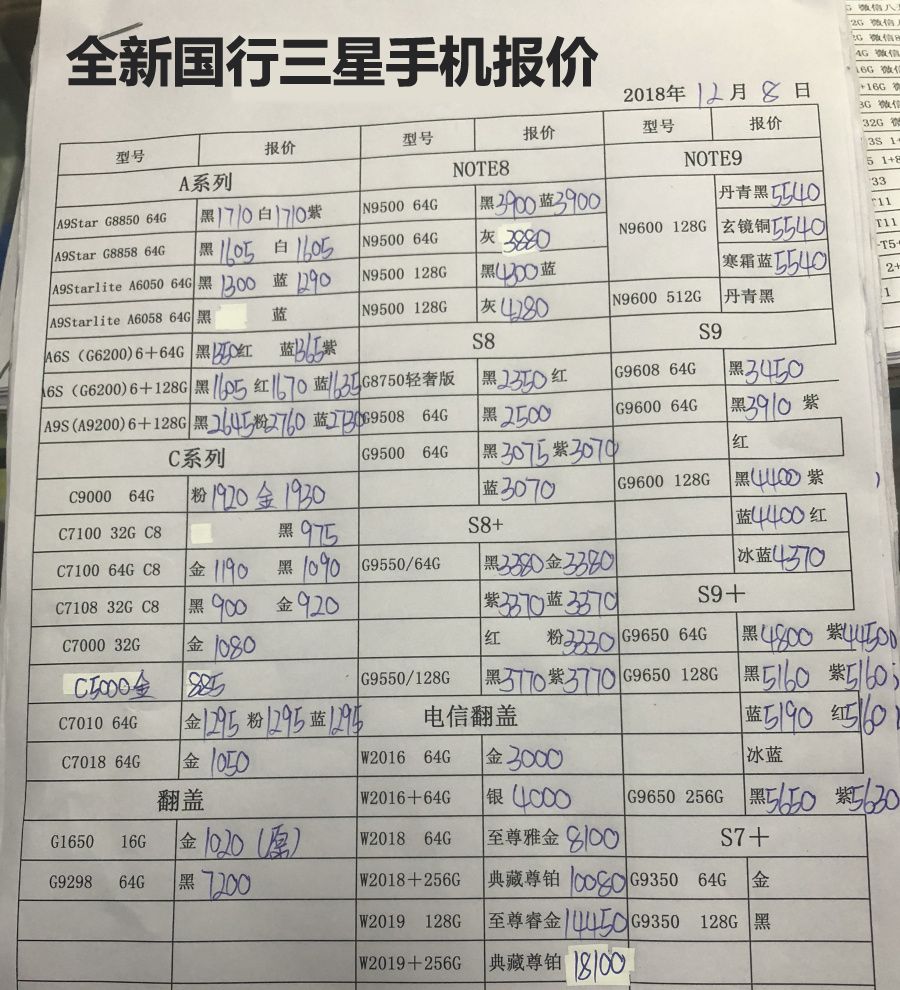 全新国行三星手机报价
2018年 12 月 8 日
型号 报价
A系列
A9Star G8850 64G 黑1710 白1710紫
A9Star G8858 64G 黑 1605 白 1605
A9Starlite A6050 64G 黑 1300 蓝 1290
A9Starlite A6058 64G 黑 蓝
A6S (G6200)6+64G 黑1350红 蓝1365紫
A6S (G6200)6+128G 黑1605 红1670 蓝1635
A9S(A9200)6+128G 黑2645粉2760 蓝2730
C系列
C9000 64G 粉 1920 金 1930
C7100 32G C8 黑 975
C7100 64G C8 金 1190 黑 1090
C7108 32G C8 黑 900 金 920
C7000 32G 金 1080
C5000金 885
C7010 64G 金1295 粉1295 蓝1295
C7018 64G 金 1050
翻盖
G1650 16G 金 1020 (原)
G9298 64G 黑 7200
型号 报价
NOTE8
N9500 64G 黑3900蓝3900
N9500 64G 灰 3880
N9500 128G 黑4300蓝
N9500 128G 灰 4280
S8
G8750轻奢版 黑2350 红
G9508 64G 黑 2500
G9500 64G 黑3075紫3070
蓝3070
S8+
G9550/64G 黑3380金3380
紫3370蓝3370
红 粉3330
G9550/128G 黑3770紫3770
电信翻盖
W2016 64G 金3000
W2016+64G 银 4000
W2018 64G 至尊雅金 8100
W2018+256G 典藏尊铂 10080
W2019 128G 至尊睿金 14450
W2019+256G 典藏尊铂 18100
型号 报价
NOTE9
N9600 128G 丹青黑5540
玄镜铜5540
寒霜蓝5540
N9600 512G 丹青黑
S9
G9608 64G 黑3450
G9600 64G 黑3910 紫
红
G9600 128G 黑4400 紫
蓝4400 红
冰蓝4370
S9+
G9650 64G 黑4800 紫4450
G9650 128G 黑5160 紫5160
蓝5190 红5160
冰蓝
G9650 256G 黑5650 紫5630
S7+
G9350 64G 金
G9350 128G 黑